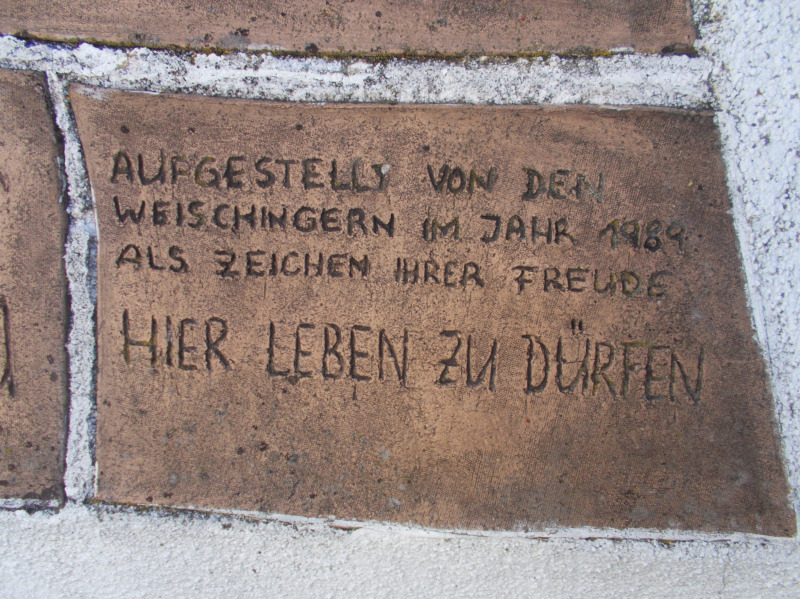 AUFGESTELLT VON DEN
WEISCHINGERN IM JAHR 1989
ALS ZEICHEN IHRER FREUDE
HIER LEBEN ZU DÜRFEN